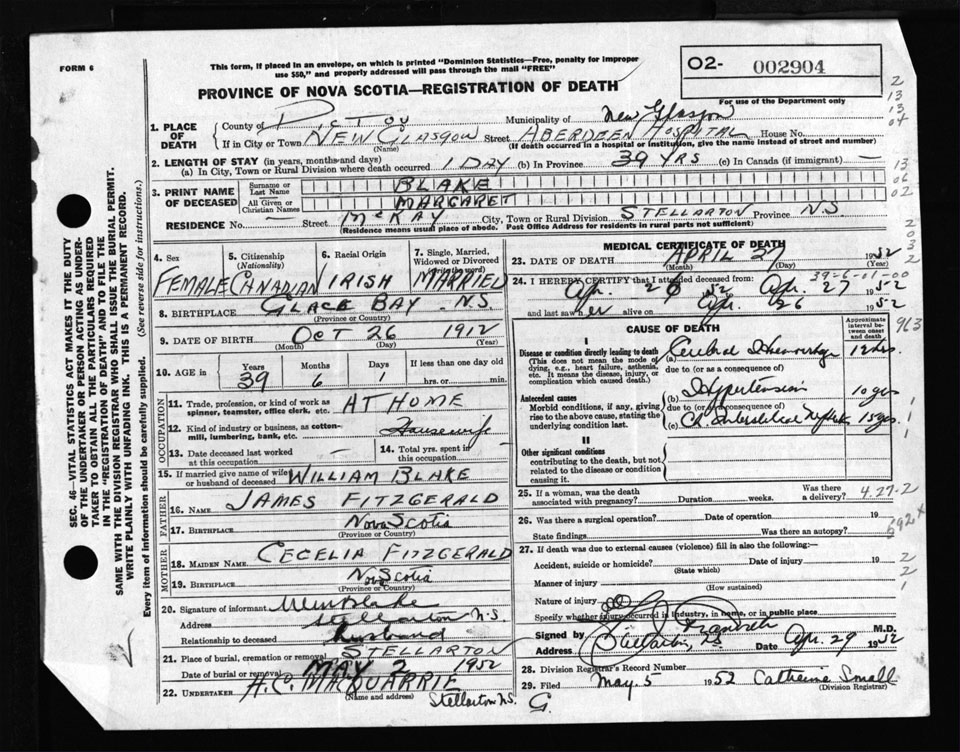 FORM 6
This form, if placed in an envelope, on which is printed "Dominion Statistics—Free, penalty for improper
use $50," and properly addressed will pass through the mail "FREE"
PROVINCE OF NOVA SCOTIA—REGISTRATION OF DEATH
O2- 002904
For use of the Department only
1. PLACE OF DEATH
County of PICTOU Municipality of New Glasgow
If in City or Town NEW GLASGOW Street ABERDEEN HOSPITAL House No.
(Name) (If death occurred in a hospital or institution, give the name instead of street and number)
2. LENGTH OF STAY (in years, months and days)
(a) In City, Town or Rural Division where death occurred 1 DAY (b) In Province 39 YRS (c) In Canada (if immigrant) —
3. PRINT NAME OF DECEASED
Surname or Last Name BLAKE
All Given or Christian Names MARGARET
RESIDENCE No. — Street MCKAY City, Town or Rural Division STELLARTON Province NS
(Residence means usual place of abode. Post Office Address for residents in rural parts not sufficient)
4. Sex FEMALE
5. Citizenship (Nationality) CANADIAN
6. Racial Origin IRISH
7. Single, Married, Widowed or Divorced (Write the word) MARRIED
8. BIRTHPLACE GLACE BAY N.S.
(Province or Country)
9. DATE OF BIRTH OCT 26 1912
(Month) (Day) (Year)
10. AGE IN Years 39 Months 6 Days 1 If less than one day old
hrs. or min.
OCCUPATION
11. Trade, profession, or kind of work as spinner, teamster, office clerk, etc. AT HOME
12. Kind of industry or business, as cotton-mill, lumbering, bank, etc. Housewife
13. Date deceased last worked at this occupation —
14. Total yrs. spent in this occupation
15. If married give name of wife or husband of deceased WILLIAM BLAKE
FATHER
16. Name JAMES FITZGERALD
17. Birthplace Nova Scotia
(Province or Country)
MOTHER
18. MAIDEN NAME CECELIA FITZGERALD
19. BIRTHPLACE Nova Scotia
(Province or Country)
20. Signature of informant Wm Blake
Address Stellarton N.S.
Relationship to deceased husband
21. Place of burial, cremation or removal STELLARTON
Date of burial or removal MAY 2 1952
22. UNDERTAKER A.C. MACQUARRIE
(Name and address) Stellarton N.S.
MEDICAL CERTIFICATE OF DEATH
23. DATE OF DEATH APRIL 27 1952
(Month) (Day)
39-6-01-00
24. I HEREBY CERTIFY that I attended deceased from
Apr. 26 52 Apr. 27 1952
and last saw her alive on Apr. 26 1952
CAUSE OF DEATH
Approximate interval between onset and death
I
Disease or condition directly leading to death (a) Cerebral Hemorrhage 12 hrs
(This does not mean the mode of dying, e.g., heart failure, asthenia, etc. It means the disease, injury, or complication which caused death.)
due to (or as a consequence of)
Antecedent causes (b) Hypertension 10 yrs
Morbid conditions, if any, giving rise to the above cause, stating the underlying condition last.
due to (or as a consequence of)
(c) Ch Interstitial Neph 15 yrs.
II
Other significant conditions
contributing to the death, but not related to the disease or condition causing it.
25. If a woman, was the death associated with pregnancy? Duration weeks. Was there a delivery?
26. Was there a surgical operation? Date of operation 19
State findings Was there an autopsy?
27. If death was due to external causes (violence) fill in also the following:—
Accident, suicide or homicide? Date of injury 19
(State which)
Manner of injury
(How sustained)
Nature of injury
Specify whether injury occurred in industry, in home, or in public place
Signed by M.D.
Address Stellarton, NS Date Apr. 29 1952
28. Division Registrar's Record Number
29. Filed May. 5 1952 Catherine Small
(Division Registrar)
G.
SEC. 46—VITAL STATISTICS ACT MAKES IT THE DUTY
OF THE UNDERTAKER OR PERSON ACTING AS UNDER-
TAKER TO OBTAIN ALL THE PARTICULARS REQUIRED
IN THE "REGISTRATION OF DEATH" AND TO FILE THE
SAME WITH THE DIVISION REGISTRAR WHO SHALL ISSUE THE BURIAL PERMIT.
WRITE PLAINLY WITH UNFADING INK. THIS IS A PERMANENT RECORD.
Every item of information should be carefully supplied. (See reverse side for instructions.)
2
13
13
04
13
06
02
963
1
1
4.27.2
692x
2
2
1